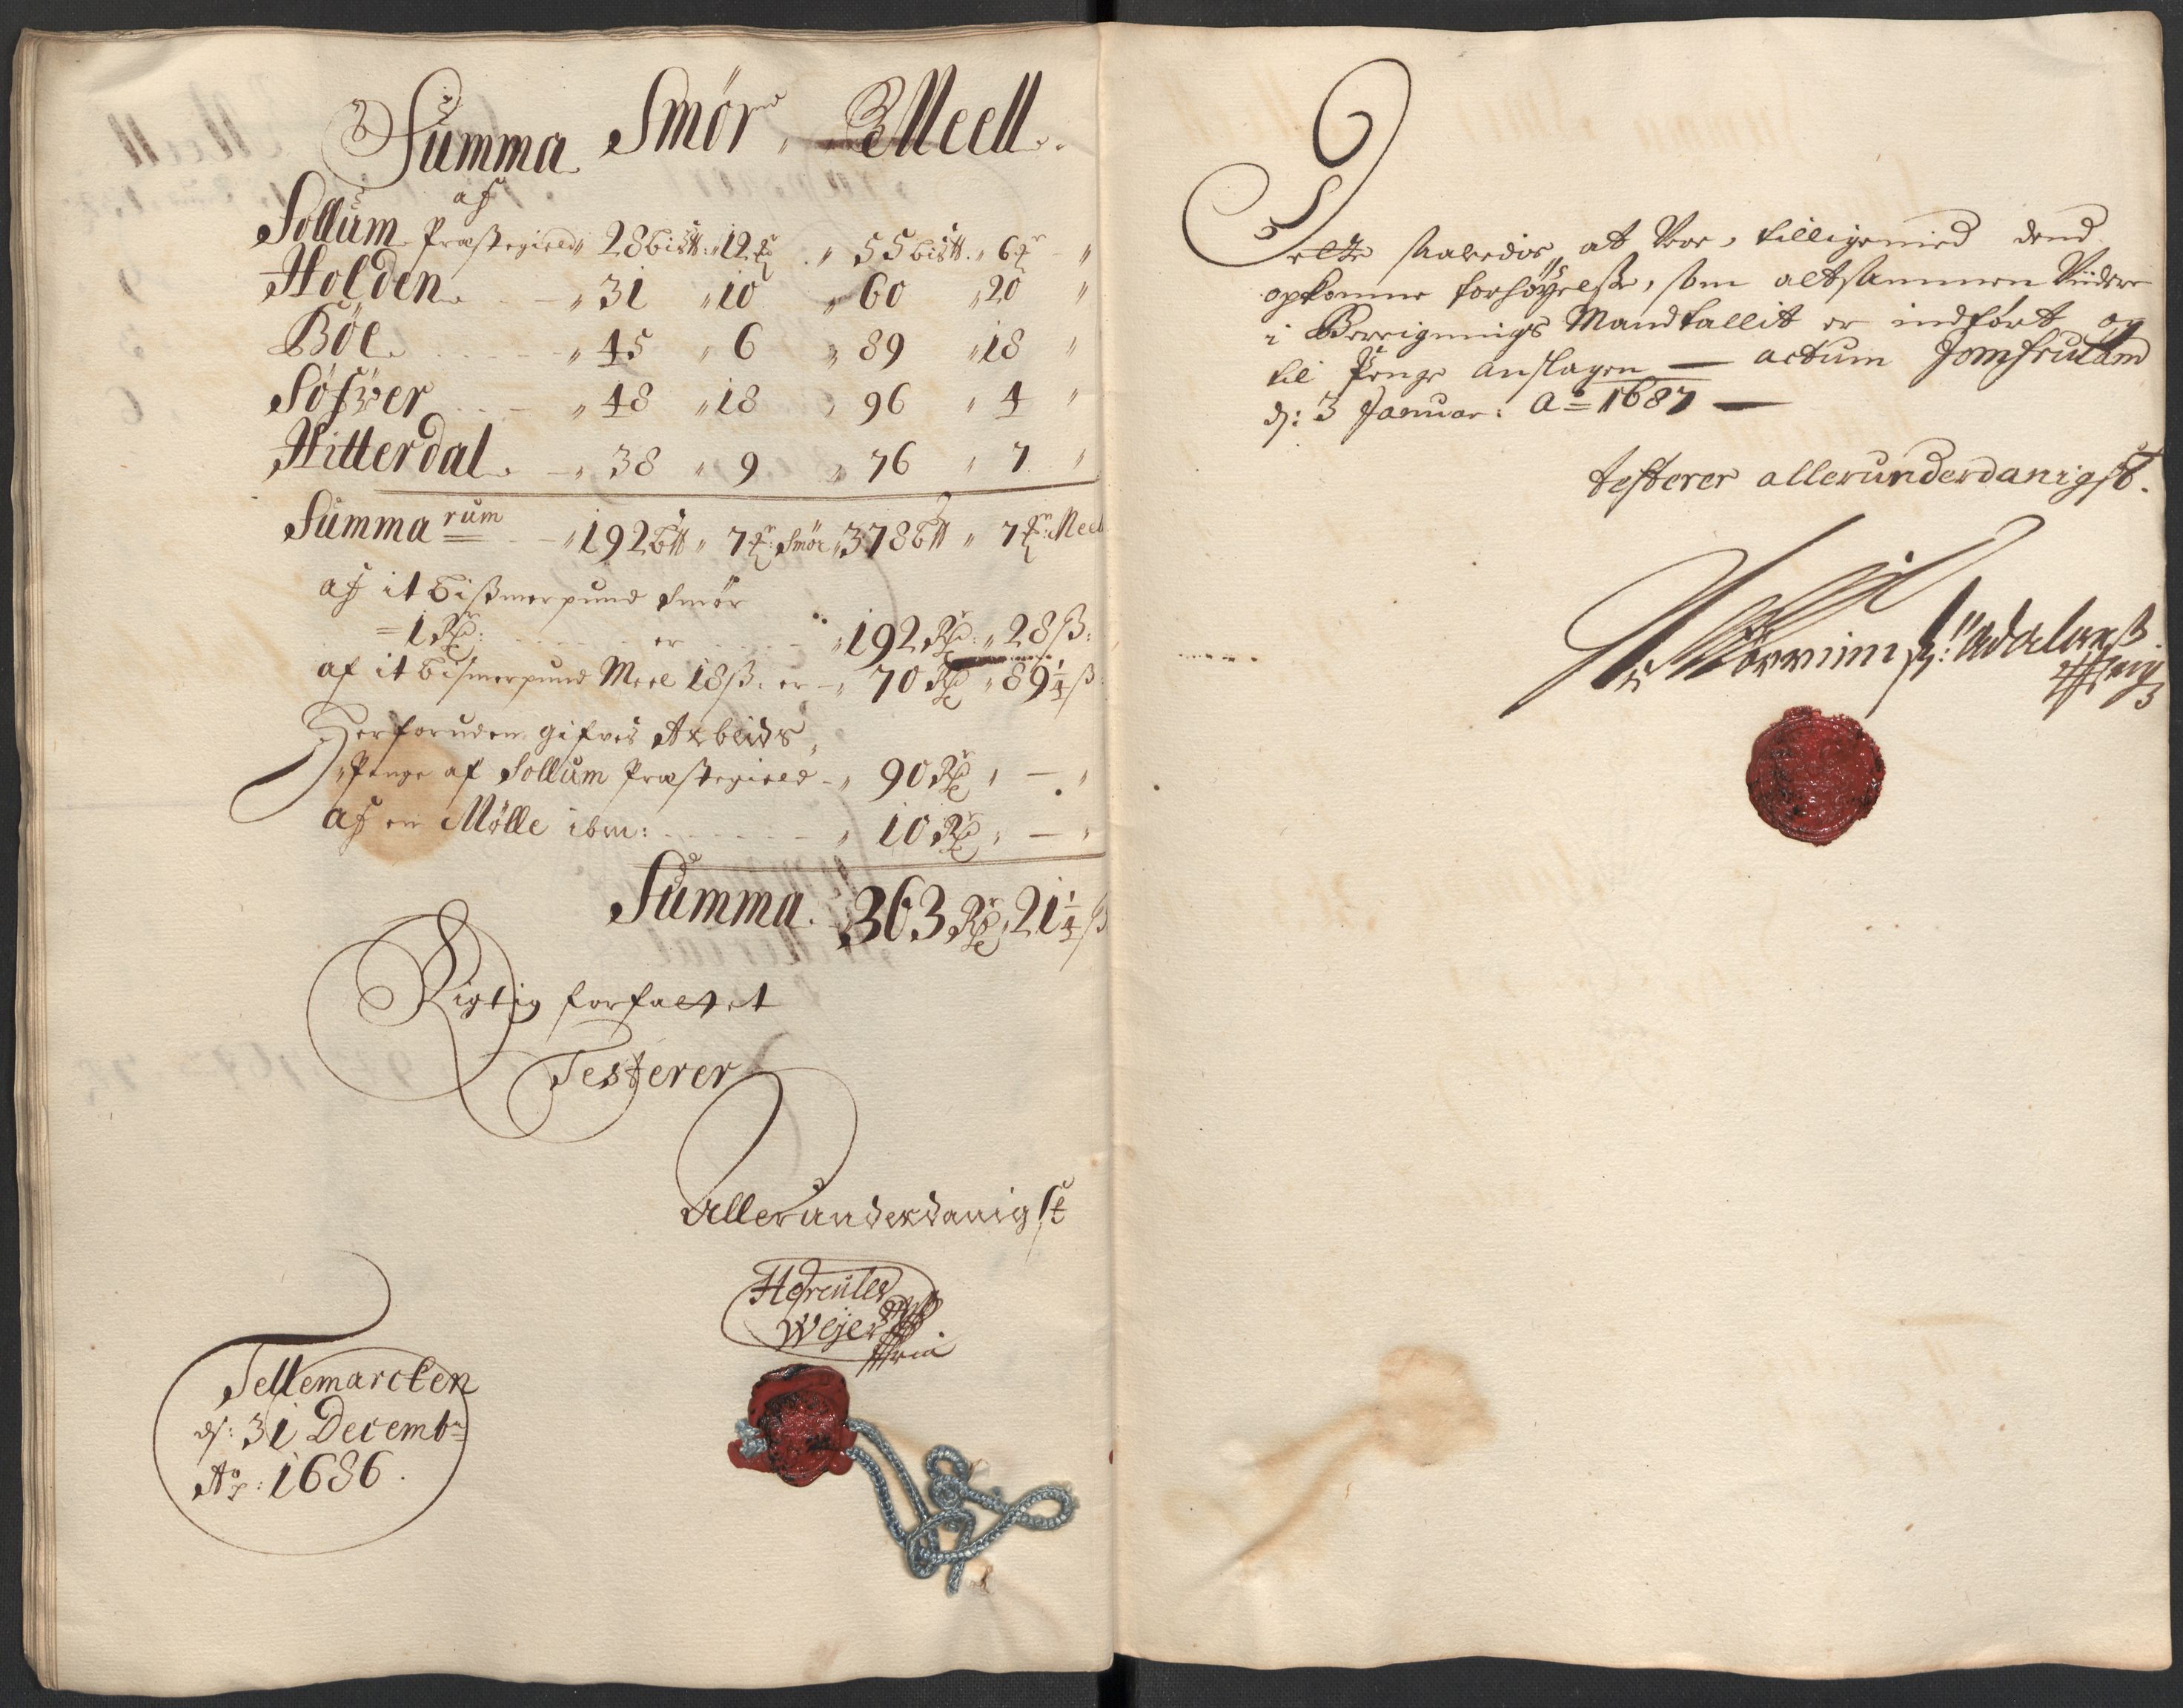 Summa Smør Meell.
af
Sollum Præstegield 28 bis℔: 12 ℳr 55 bis℔. 6 ℳr
Holden 31 10 60 20
Böe 45 6 89 18
Söfver 48 18 96 4
Hitterdal. 38 9 76 7
Summa rum 192 b℔ 7 ℳr: Smör 378 b℔ 7 ℳr: Meel
af it bismerpund Smör
= 1 Rdr: er 192 Rdr: 28 ß:
af it bismerpund Meel 18 ß: er 70 Rdr 89 1/4 ß
Herforuden gifves Arbeids
Penge af Sollum Præstegield 90 Rdr —
af en Mölle ibm: 10 Rdr —
Summa. 363 Rdr 21 1/4 ß
Rigtig forfattet
Testerer
Allerunderdanigst
Hercules
Wejer
mria
Tellemarcken
d: 31 Decembr
Ao: 1686.
Dette saaledis at vere, tilligemed dend
opkomne forhöyelse, som altsammen Videre
i Beregnings Mandtallit er indfört og
til Penge anslagen — actum Jomfruland
d: 3 Januar: Ao 1687 —
testerer allerunderdanigst.